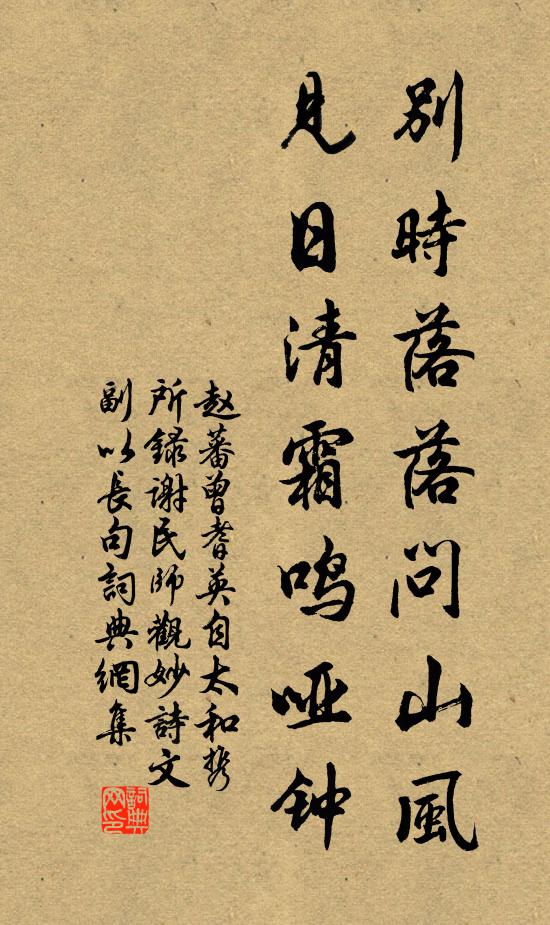 別時落落問山風
見日清霜鳴哑钟
赵蕃曾耆英自太和携
所錄谢民師觀妙詩文
副以長句詞典網集
詞典网印